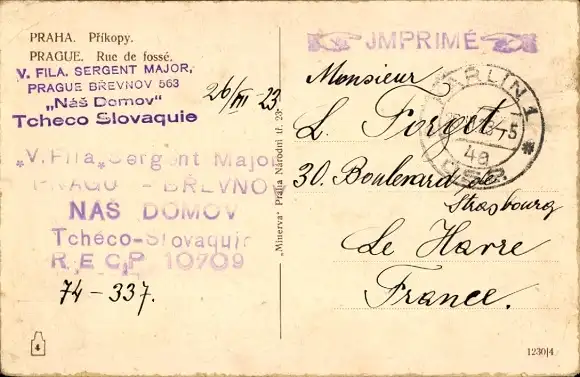 PRAHA. Příkopy.
PRAGUE. Rue de fossé.
V. FILA. SERGENT MAJOR,
PRAGUE BŘEVNOV 563
„Náš Domov"
Tcheco Slovaquie
26/III-23
„V. Fila„ Sergent Major
PRAGU - BŘEVNO
NAŠ DOMOV
Tchéco-Slovaquie
R.E.C.P 10709
74-337.
4
„Minerva" Praha Národní tř. 23.
JMPRIMÉ
KARLIN 1
48
ČSR
Monsieur
L. Forget
30. Boulevard de
Strasbourg
Le Havre
France.
1230|4